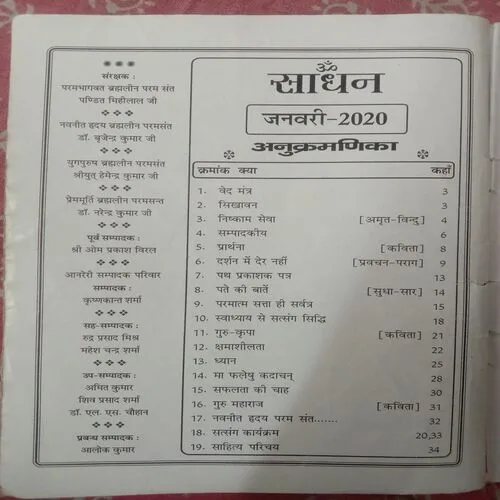 संरक्षक :
परमभागवत ब्रह्मलीन परम संत
पण्डित मिहीलाल जी
नवनीत हृदय ब्रह्मलीन परमसंत
डॉ. बृजेन्द्र कुमार जी
युगपुरुष ब्रह्मलीन परमसंत
श्रीयुत् हेमेन्द्र कुमार जी
प्रेममूर्ति ब्रह्मलीन परमसन्त
डॉ. नरेन्द्र कुमार जी
पूर्व सम्पादक :
श्री ओम प्रकाश विरल
आनरेरी सम्पादक परिवार
सम्पादक :
कृष्णकान्त शर्मा
सह-सम्पादक :
रुद्र प्रसाद मिश्र
महेश चन्द्र शर्मा
उप-सम्पादक :
अमित कुमार
शिव प्रसाद शर्मा
डॉ. एल. एस. चौहान
प्रबन्ध सम्पादक :
आलोक कुमार
ॐ
साधन
जनवरी-2020
अनुक्रमणिका
क्रमांक क्या कहाँ
1. वेद मंत्र 3
2. सिखावन 3
3. निष्काम सेवा [अमृत-विन्दु] 4
4. सम्पादकीय 6
5. प्रार्थना [कविता] 8
6. दर्शन में देर नहीं [प्रवचन-पराग] 9
7. पथ प्रकाशक पत्र 13
8. पते की बातें [सुधा-सार] 14
9. परमात्म सत्ता ही सर्वत्र 15
10. स्वाध्याय से सत्संग सिद्धि 18
11. गुरु-कृपा [कविता] 21
12. क्षमाशीलता 22
13. ध्यान 25
14. मा फलेषु कदाचन् 28
15. सफलता की चाह 30
16. गुरु महाराज [कविता] 31
17. नवनीत हृदय परम संत....... 32
18. सत्संग कार्यक्रम 20,33
19. साहित्य परिचय 34